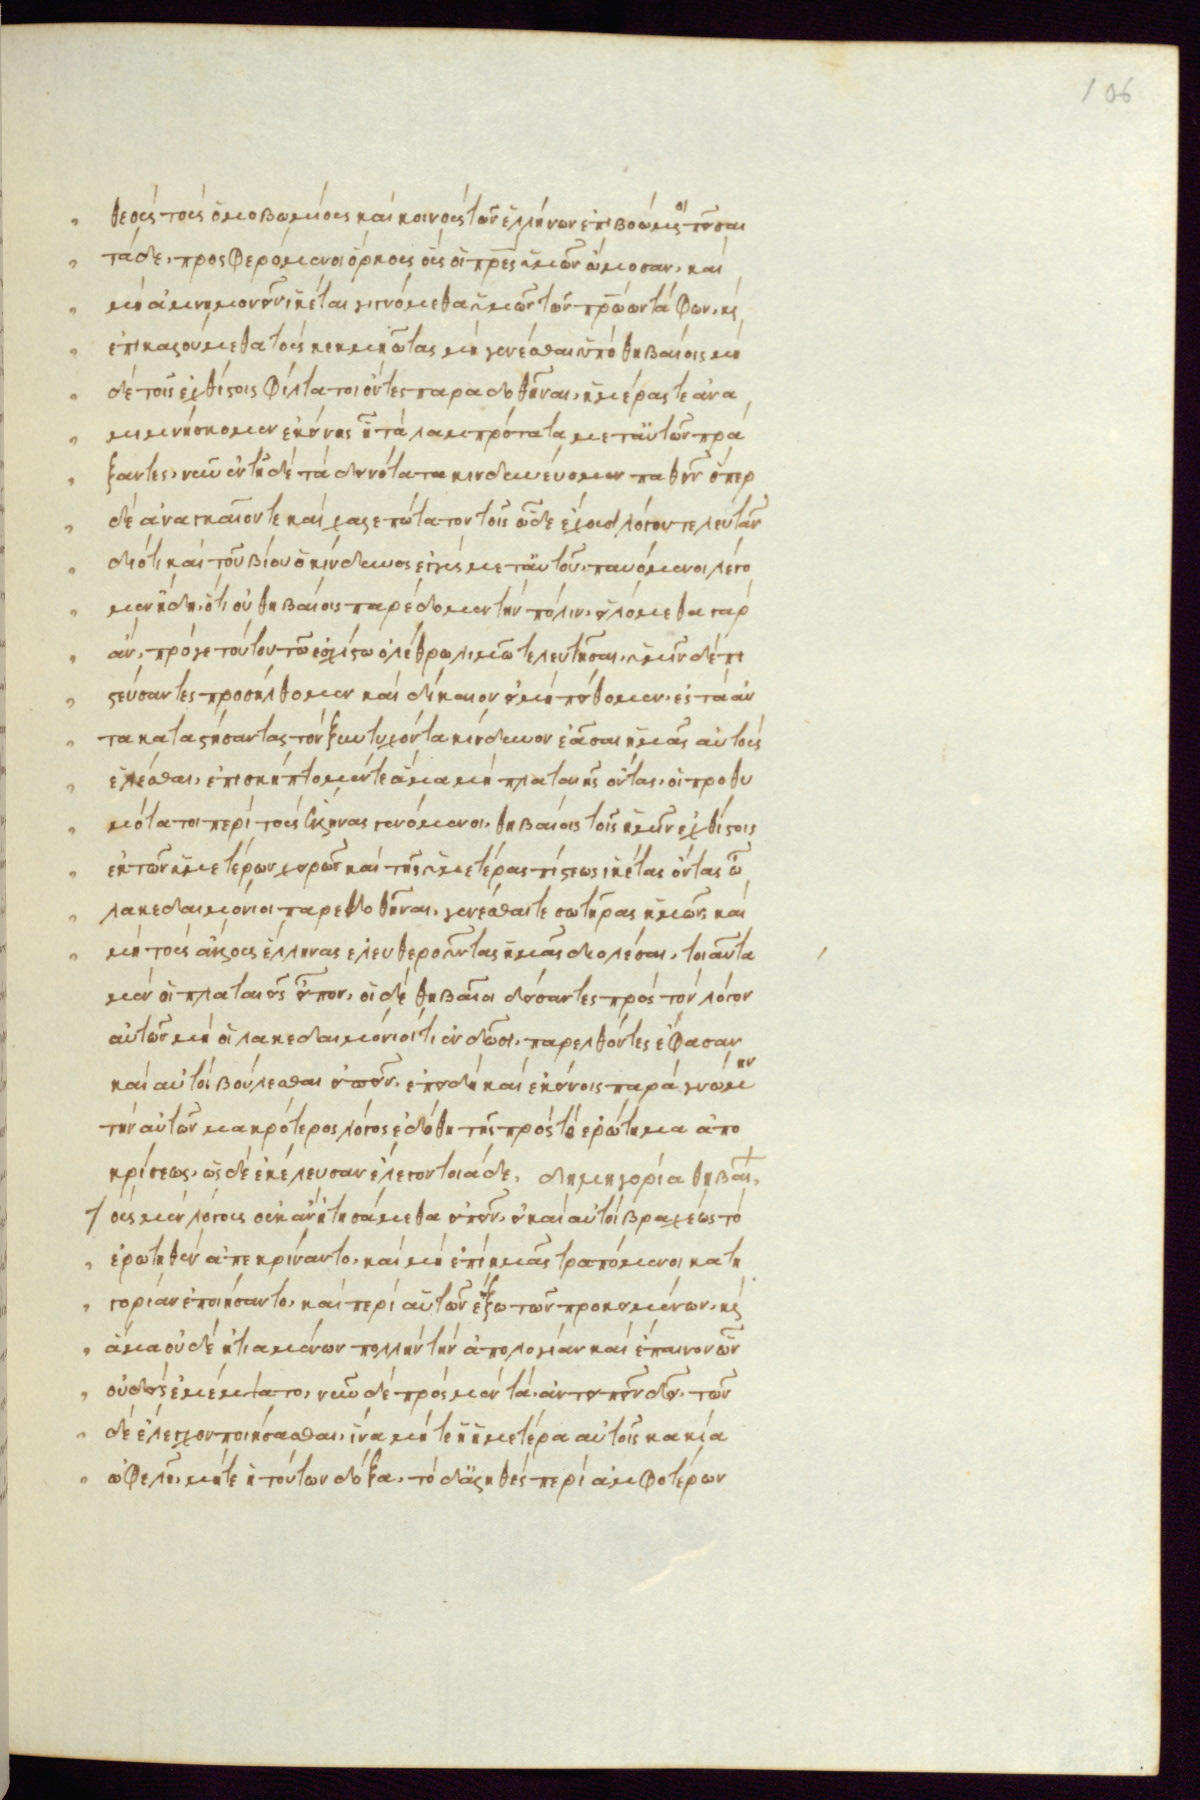 106
θεοὺς τοὺς ὁμοβωμίους καὶ κοινοὺς τῶν ἑλλήνων ἐπιβοώμενοι πεῖσαι
τάδε, προσφερόμενοι ὅρκους οὓς οἱ πρες ἡμῶν ὤμοσαν, καὶ
μὴ ἀμνημονεῖν ἱκέται γινόμεθα ὑμῶν τῶν πρώων τάφων, κς
ἐπικαλούμεθα τοὺς κεκμηῶτας μὴ γενέσθαι ὑπὸ θηβαίοις μη
δὲ τοῖς ἐχθίστοις φίλτατοι ὄντες παραδοθῆναι, ἡμέρας τε ἀνα
μιμνήσκομεν ἐκείνης ᾗ τὰ λαμπρότατα μετ' αὐτῶν πρά
ξαντες, νῦν ἐν τῇδε τὰ δεινότατα κινδυνεύομεν παθεῖν ὅπερ
δὲ ἀναγκαῖον τε καὶ χαλεπώτατον τοῖς ὧδε ἔχουσι λόγου τελευτᾶν
διότι καὶ τοῦ βίου ὁ κίνδυνος ἐγγὺς μετ' αὐτοῦ, παυόμενοι λέγο
μεν ἤδη, ὅτι οὐ θηβαίοις παρέδομεν τὴν πόλιν, εἱλόμεθα γὰρ
ἂν, πρό γε τούτου τῶ αἰσχίστω ὀλέθρω λιμῶ τελευτῆσαι, ὑμῖν δὲ πι
στεύσαντες προσήλθομεν καὶ δίκαιον εἰ μὴ πείθομεν, ἐς τὰ αὐ
τὰ καταστήσαντας τὸν ξυντυχόντα κίνδυνον ἐᾶσαι ἡμᾶς αὐτοὺς
ἑλέσθαι, ἐπισκήπτομέν τε ἅμα μὴ πλαταιῆς ὄντες, οἱ προθυ
μότατοι περὶ τοὺς ἕλληνας γενόμενοι, θηβαίοις τοῖς ἡμῖν ἐχθίστοις
ἐκ τῶν ὑμετέρων χειρῶν καὶ τῆς ὑμετέρας πίστεως ἱκέτας ὄντας ὦ
λακεδαιμόνιοι παραδοθῆναι, γενέσθαι τε σωτῆρας ἡμῶν, καὶ
μὴ τοὺς ἄλλους ἕλληνας ἐλευθεροῦντας ἡμᾶς διολέσαι, τοιαῦτα
μὲν οἱ πλαταιεῖς εἶπον, οἱ δὲ θηβαῖοι δείσαντες πρὸς τὸν λόγον
αὐτῶν μὴ οἱ λακεδαιμόνιοί τι ἐνδῶσι, παρελθόντες ἔφασαν
καὶ αὐτοὶ βούλεσθαι εἰπεῖν, ἐπειδὴ καὶ ἐκείνοις παρὰ γνώμην
τὴν αὐτῶν μακρότερος λόγος ἐδόθη τῆς πρὸς τὸ ἐρώτημα ἀπο
κρίσεως, ὡς δὲ ἐκέλευσαν ἔλεγον τοιάδε. δημηγορία θηβαί,
τοὺς μὲν λόγους οὐκ ἂν ᾐτησάμεθα εἰπεῖν, εἰ καὶ αὐτοὶ βραχέως τὸ
ἐρωτηθὲν ἀπεκρίναντο, καὶ μὴ ἐπὶ ἡμᾶς τραπόμενοι κατη
γορίαν ἐποιήσαντο, καὶ περὶ αὑτῶν ἔξω τῶν προκειμένων, κς
ἅμα οὐδὲ ᾐτιαμένων πολλὴν τὴν ἀπολογίαν καὶ ἔπαινον ὧν
οὐδεὶς ἐμέμψατο, νῦν δὲ πρὸς μὲν τὰ, ἀντειπεῖν δεῖ, τῶν
δὲ ἔλεγχον ποιήσασθαι, ἵνα μήτε ἡ ἡμετέρα αὐτοῖς κακία
ὠφελῆ, μήτε ἡ τούτων δόξα, τὸ δ' ἀληθὲς περὶ ἀμφοτέρων